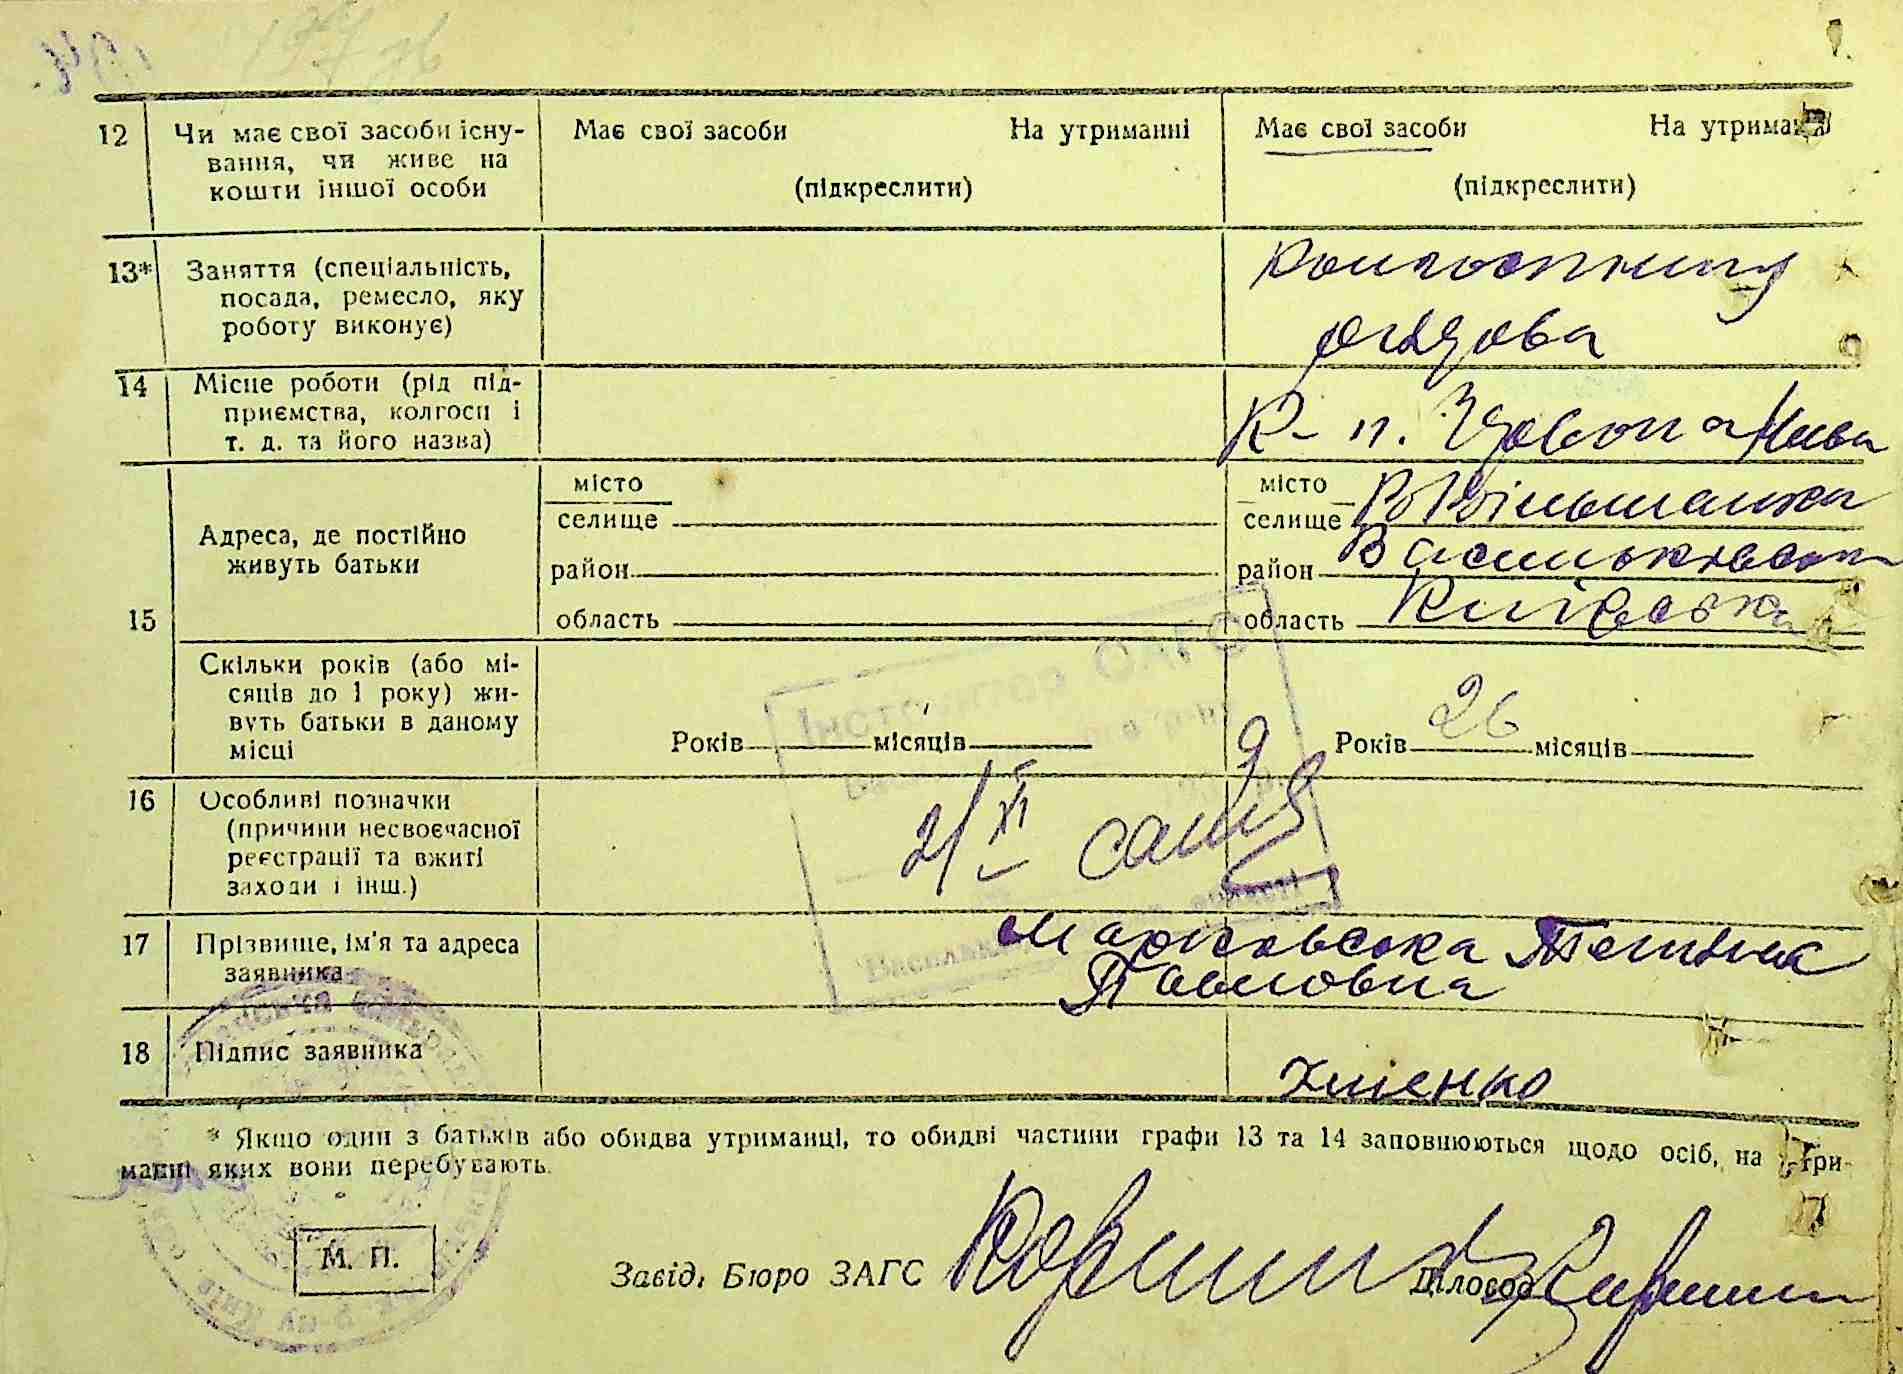 12 Чи має свої засоби існу- Має свої засоби На утриманні Має свої засоби На утриман
вання, чи живе на
кошти іншої особи (підкреслити) (підкреслити)
13* Заняття (спеціальність,
посада, ремесло, яку
роботу виконує)
рядова
14 Місце роботи (рід під-
приємства, колгосп і
т. д. та його назва) К-п. Червона Нива
15 Адреса, де постійно
живуть батьки
місто місто
селище селище
район район Васильківськ
область область Київська
Скільки років (або мі-
сяців до 1 року) жи-
вуть батьки в даному
місці
Років місяців Років 26 місяців
16 Особливі позначки
(причини несвоєчасної
реєстрації та вжиті
заходи і інш.)
Інспектор ОАГС
21/XI
17 Прізвище, ім'я та адреса
заявника
Марковська Тетяна
Павловна
18 Підпис заявника
* Якщо один з батьків або обидва утриманці, то обидві частини графи 13 та 14 заповнюються щодо осіб, на утри-
манні яких вони перебувають.
М. П.
Завід. Бюро ЗАГС Діловод